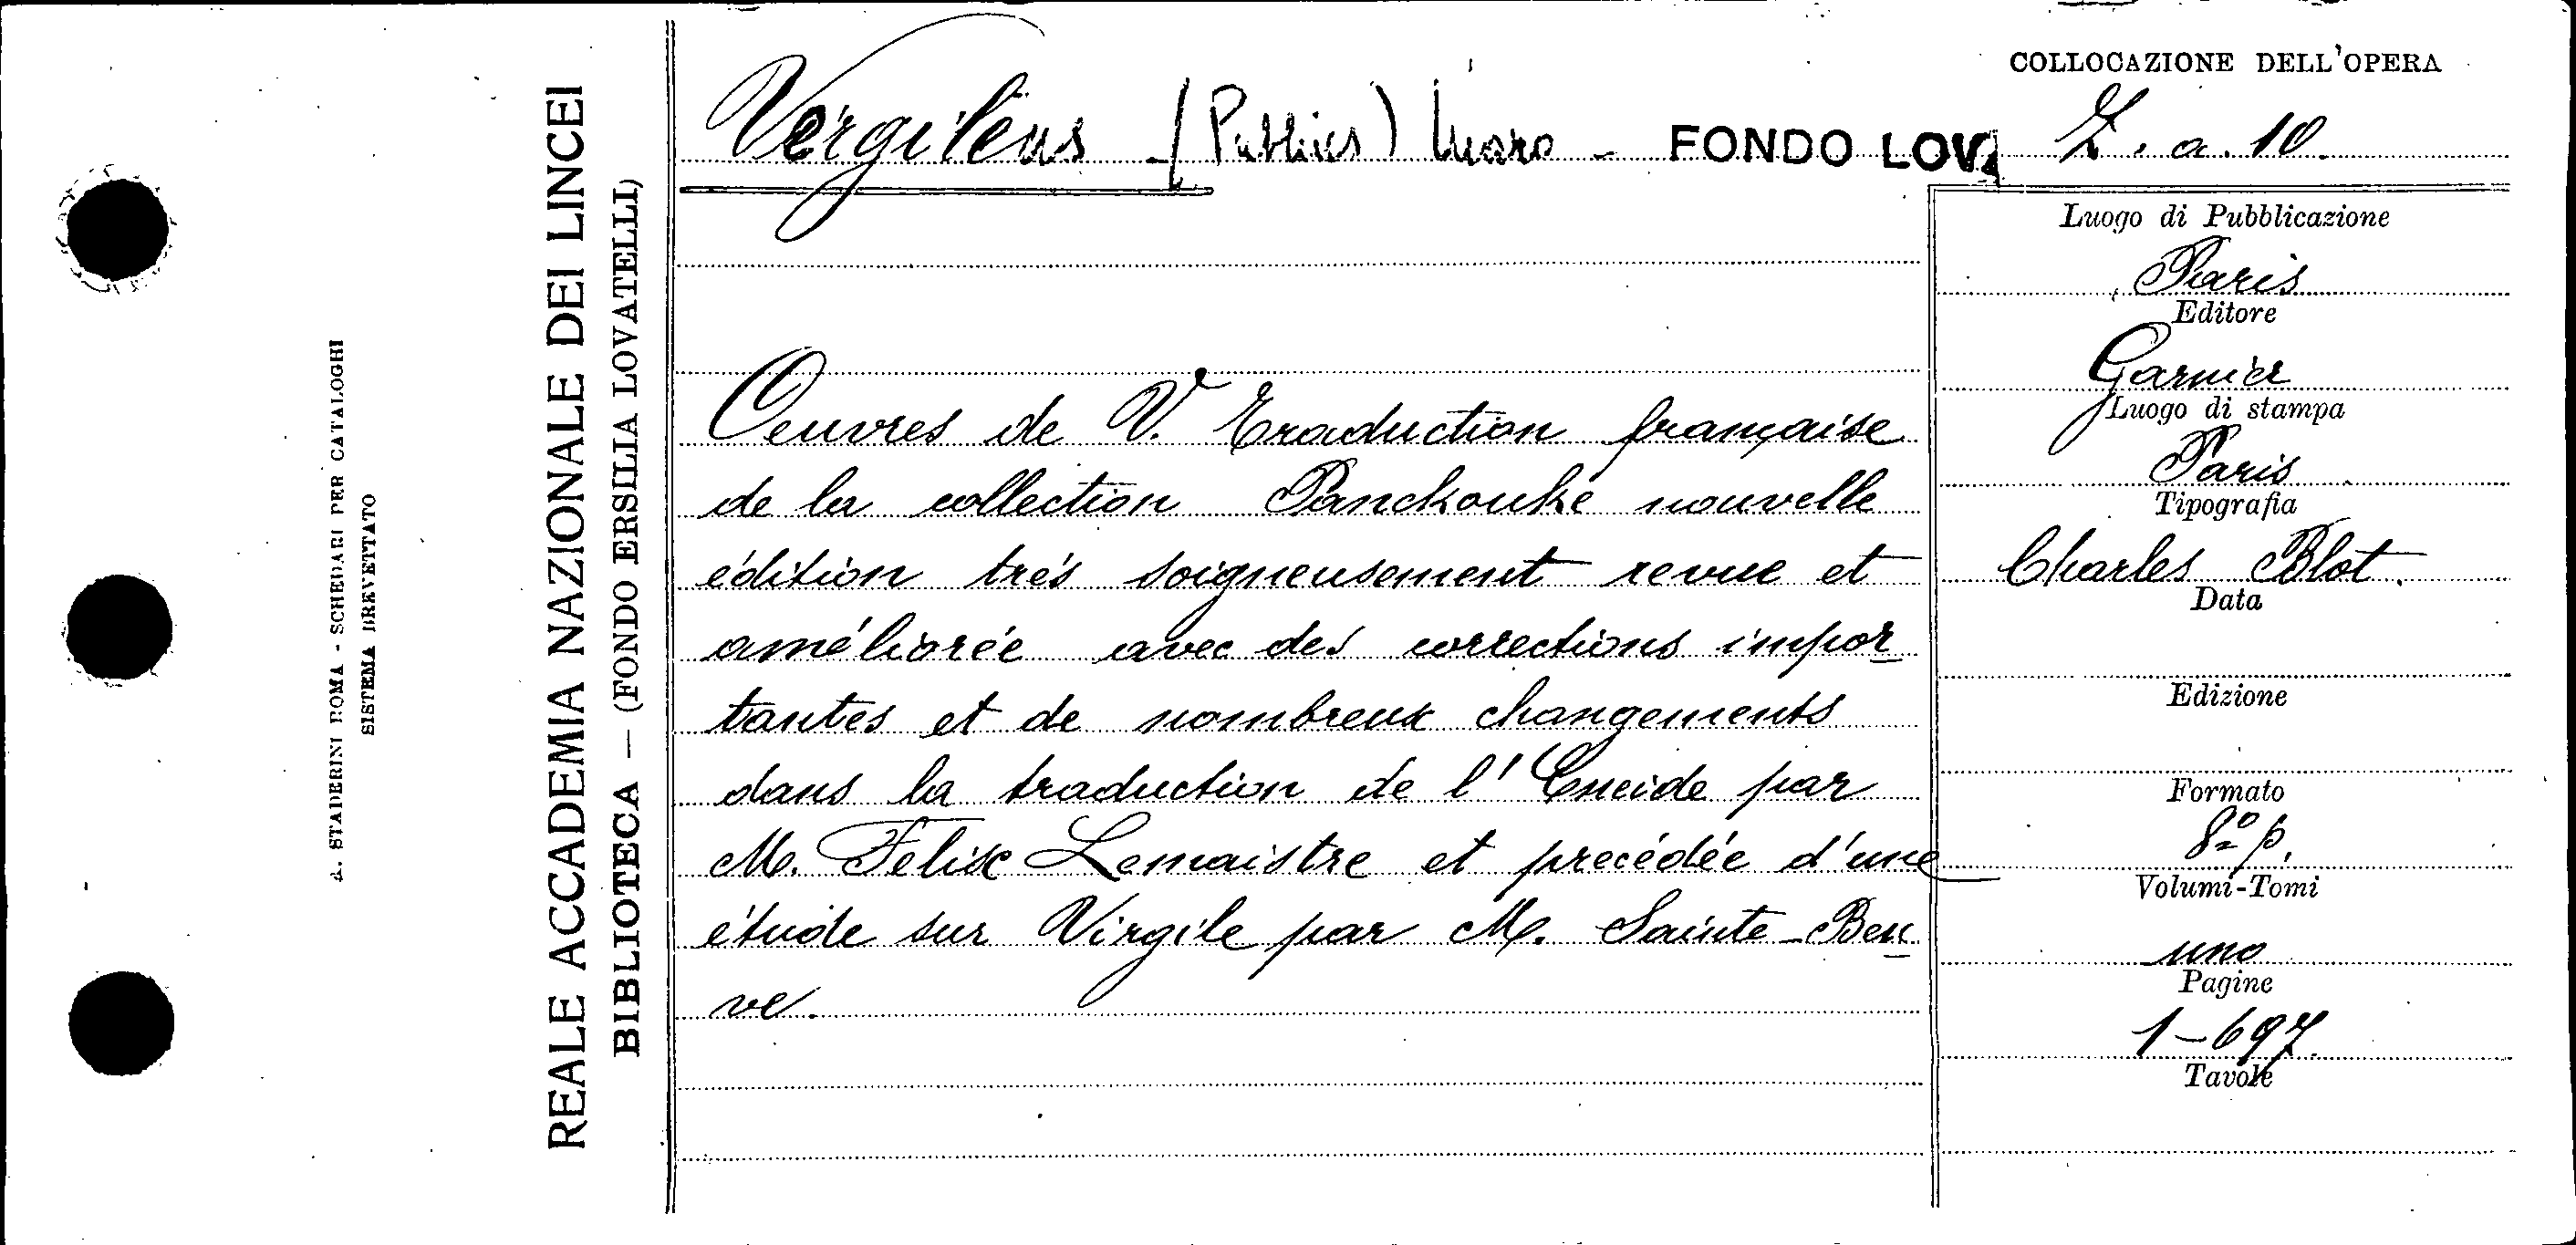 A. STADERINI ROMA - SCHEDARI PER CATALOGHI
SISTEMA BREVETTATO
REALE ACCADEMIA NAZIONALE DEI LINCEI
BIBLIOTECA — (FONDO ERSILIA LOVATELLI)
Vergilius (Publius) Maro - FONDO LOV.
Oeuvres de V. Traduction française
de la collection Panckouke nouvelle
édition trés soigneusement revue et
améliorée avec des corrections impor-
tantes et de nombreux changements
dans la traduction de l'Eneide par
M. Felix Lemaistre et precédée d'une
étude sur Virgile par M. Sainte-Beu-
ve.
COLLOCAZIONE DELL'OPERA
Z. a. 10.
Luogo di Pubblicazione
Paris
Editore
Garnier
Luogo di stampa
Paris
Tipografia
Charles Blot.
Data
Edizione
Formato
8º p.
Volumi-Tomi
uno
Pagine
1-697
Tavole